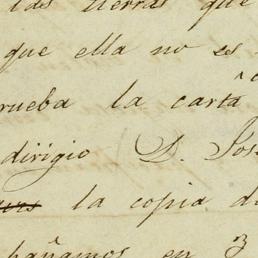 las tierras que
que ella no es
rueba la carta
dirigio D. Jos
la copia d
bañamos en 3